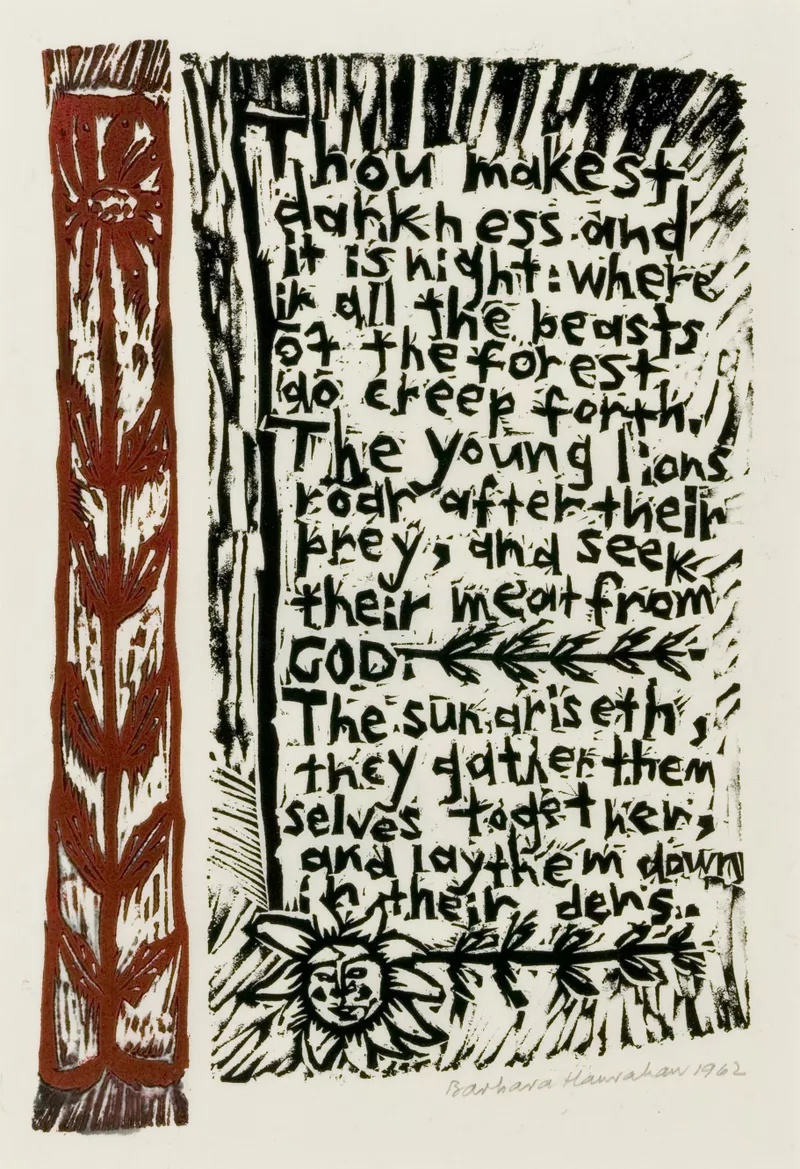 Thou makest
darkness and
it is night: where
in all the beasts
of the forest
do creep forth.
The young lions
roar after their
prey, and seek
their meat from
GOD.
The sun ariseth,
they gather them
selves together,
and lay them down
in their dens.
Barbara Hanrahan 1962